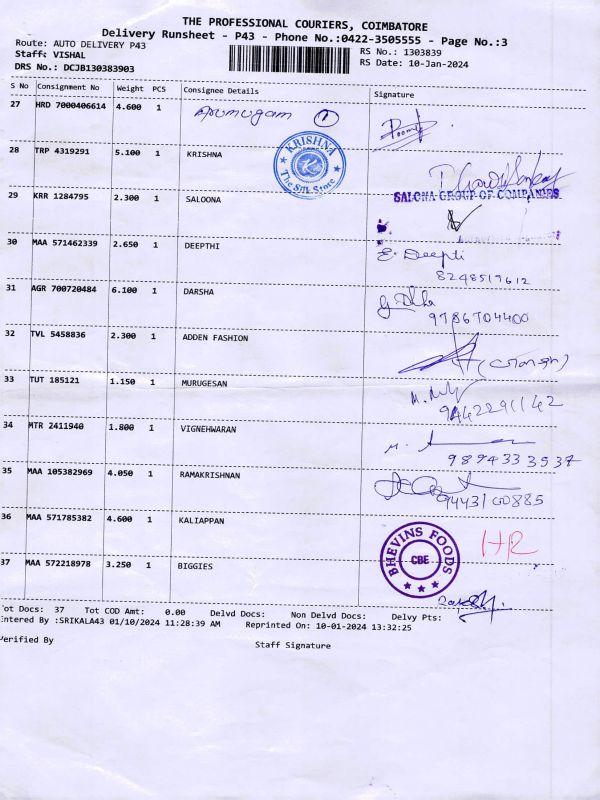 THE PROFESSIONAL COURIERS, COIMBATORE
Delivery Runsheet - P43 - Phone No.:0422-3505555 - Page No.:3
Route: AUTO DELIVERY P43 RS No.: 1303839
Staff: VISHAL RS Date: 10-Jan-2024
DRS No.: DCJB130383903
S No Consignment No Weight PCS Consignee Details Signature
27 HRD 7000406614 4.600 1 Arumugam 1
28 TRP 4319291 5.100 1 KRISHNA
KRISHNA
The Silk Store
SALONA GROUP OF COMPANIES
29 KRR 1284795 2.300 1 SALOONA
30 MAA 571462339 2.650 1 DEEPTHI E. Deepti
8248519612
31 AGR 700720484 6.100 1 DARSHA
9786704400
32 TVL 5458836 2.300 1 ADDEN FASHION
33 TUT 185121 1.150 1 MURUGESAN
9442291142
34 MTR 2411940 1.800 1 VIGNEHWARAN
9894333537
35 MAA 105382969 4.050 1 RAMAKRISHNAN
9443100885
36 MAA 571785382 4.600 1 KALIAPPAN HR
BHEVINS FOODS
CBE
37 MAA 572218978 3.250 1 BIGGIES
ot Docs: 37 Tot COD Amt: 0.00 Delvd Docs: Non Delvd Docs: Delvy Pts:
ntered By :SRIKALA43 01/10/2024 11:28:39 AM Reprinted On: 10-01-2024 13:32:25
erified By Staff Signature